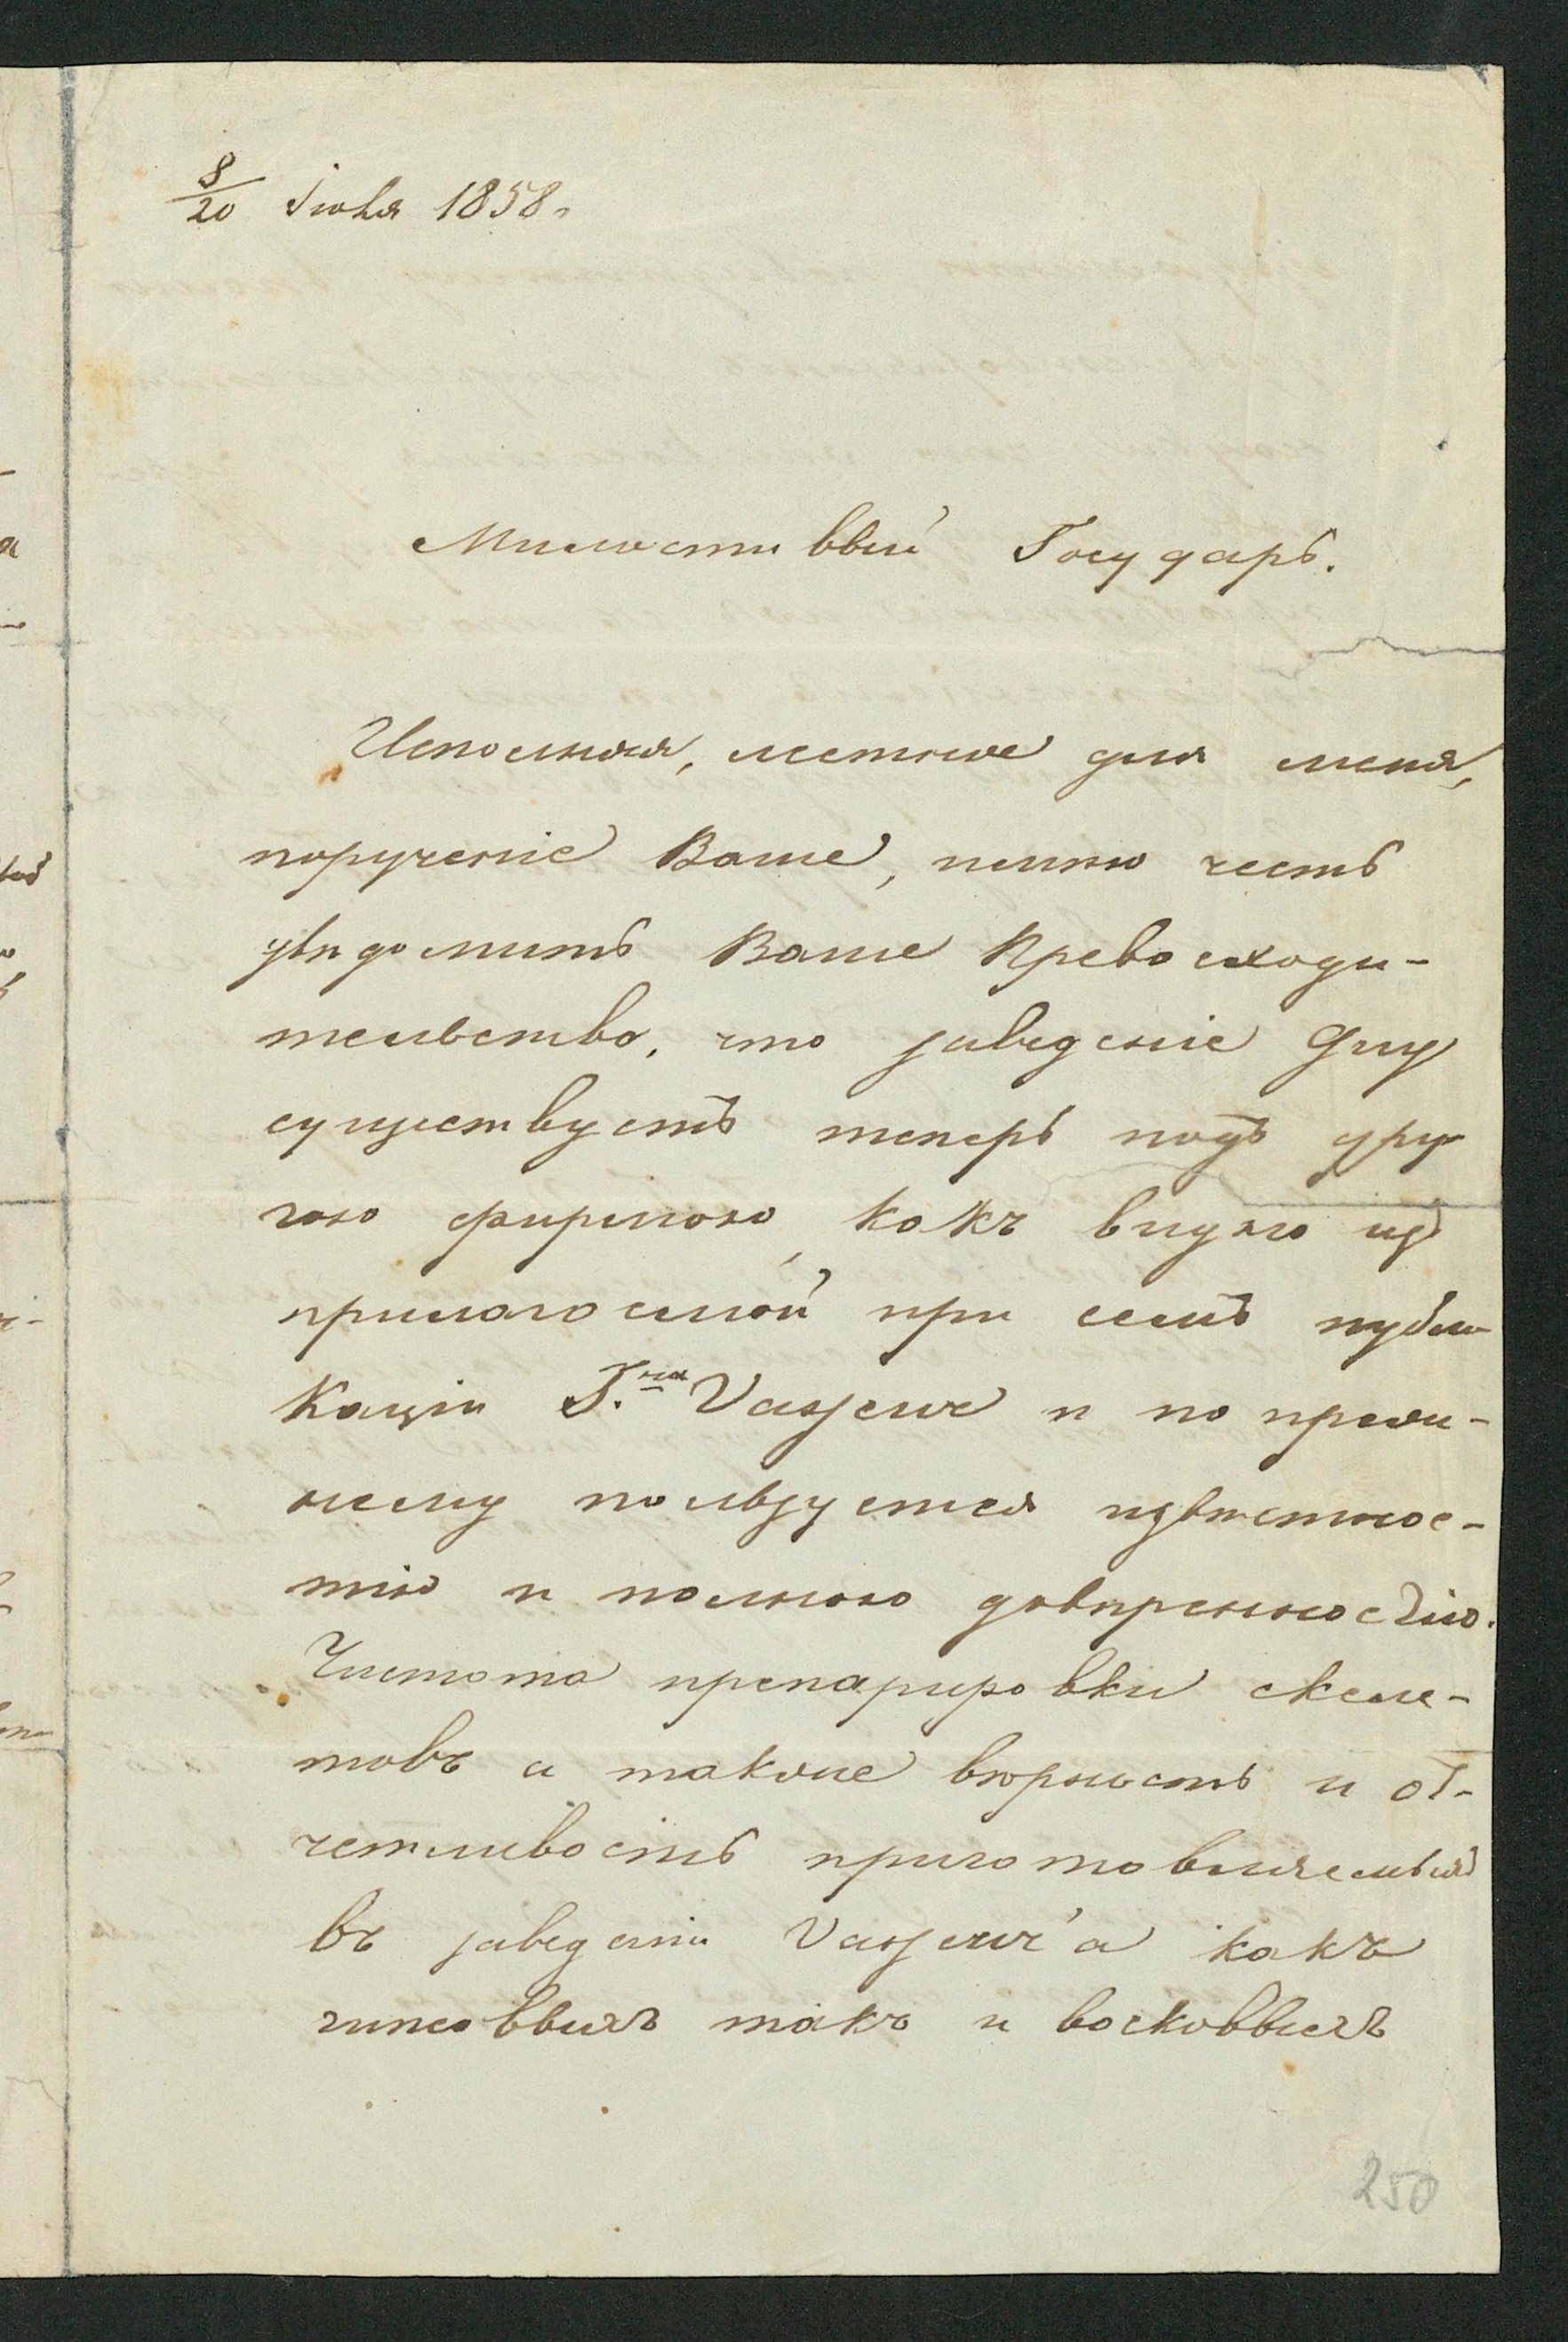 8/20 Іюля 1858.
Милостивый Государь.
Исполняя, лестное для меня,
порученіе Ваше, имѣю честь
увѣдомить Ваше Превосходи-
тельство, что заведеніе Гюи
существуетъ теперь подъ дру
гою фирмою, какъ видно изъ
прилагаемой при семъ публи-
каціи Г.на Vasseur и по преж-
нему пользуется извѣстнос-
тію и полною довѣренностію.
Чистота препарировки скеле-
товъ а также вѣрность и от-
четливость приготовляемыхъ
въ заведеніи Vasseur'а какъ
гипсовыхъ такъ и восковыхъ
250